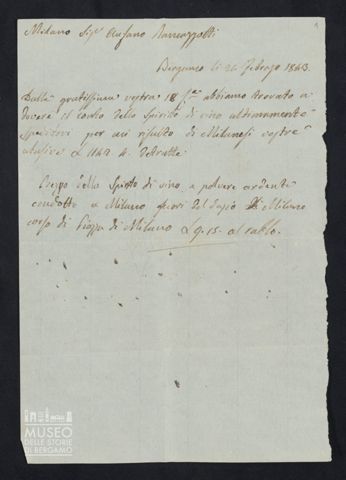 Milano Sigr Ausano
Bergamo li 26 Febrajo 1843
Dalla gratissima vostra 18 abbiamo trovato a
dovere il conto dello Spirito di vino ultimamente
speditovi per cui risulta di Milanesi vostre
£ 1143. 4. Dedotte
Prezzo dello Spirito di vino, a polvere ardente
condotto a Milano fuori del Dazio di Milano
corso di Piazza di Milano £ 9. 15. al rubbo.
MUSEO
DELLE STORIE
DI BERGAMO